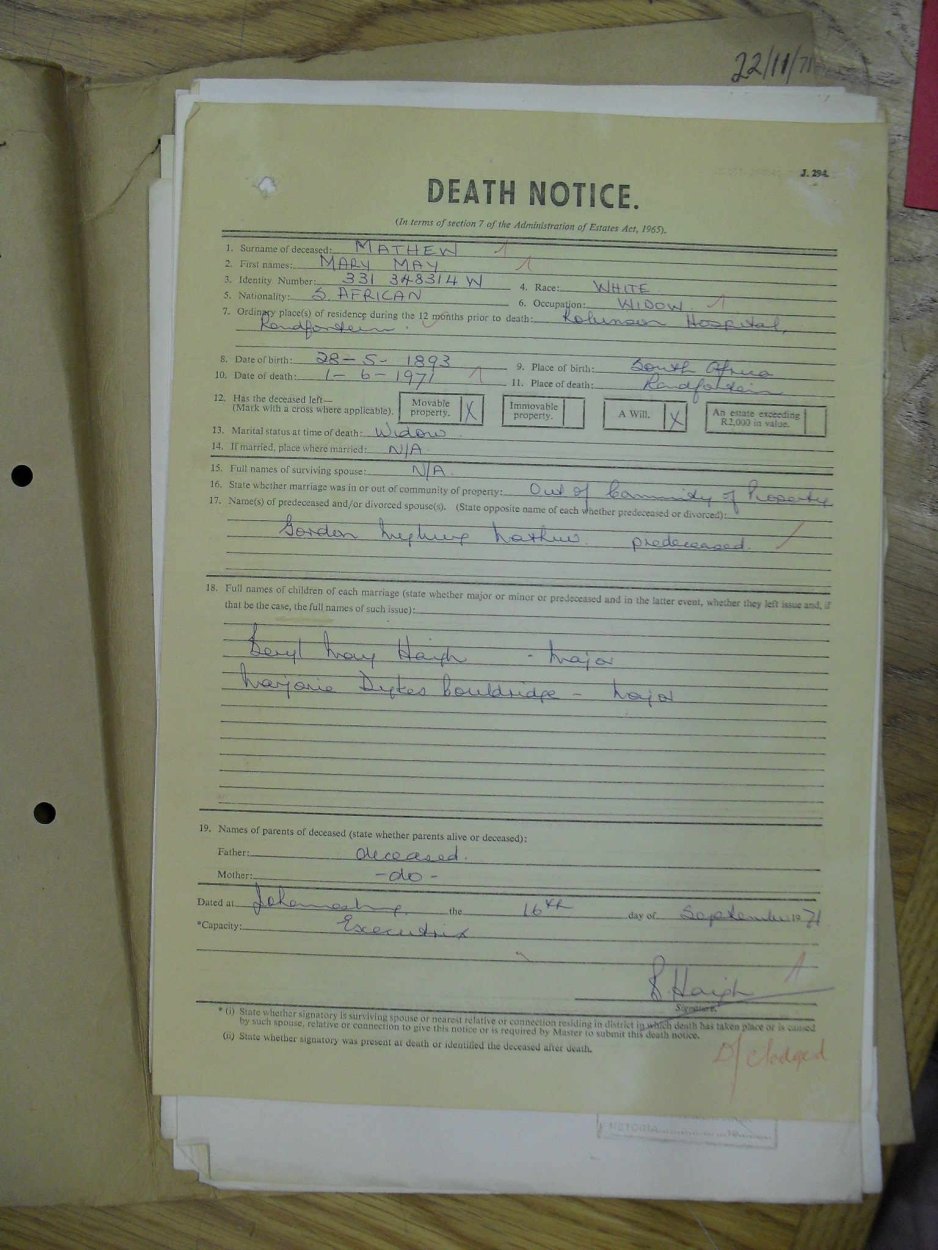 22/11/71
J. 294.
DEATH NOTICE.
(In terms of section 7 of the Administration of Estates Act, 1965).
1. Surname of deceased: MATHEW
2. First names: MARY MAY
3. Identity Number: 331 348314 W 4. Race: WHITE
5. Nationality: S. AFRICAN 6. Occupation: WIDOW
7. Ordinary place(s) of residence during the 12 months prior to death: Robinson Hospital,
Randfontein.
8. Date of birth: 28-5-1893 9. Place of birth: South Africa
10. Date of death: 1-6-1971 11. Place of death: Randfontein
12. Has the deceased left—
(Mark with a cross where applicable). Movable property. X Immovable property. A Will. X An estate exceeding R2,000 in value.
13. Marital status at time of death: Widow
14. If married, place where married: N/A
15. Full names of surviving spouse: N/A
16. State whether marriage was in or out of community of property: Out of Community of Property
17. Name(s) of predeceased and/or divorced spouse(s). (State opposite name of each whether predeceased or divorced):
Gordon Mathew. predeceased.
18. Full names of children of each marriage (state whether major or minor or predeceased and in the latter event, whether they left issue and, if
that be the case, the full names of such issue):
Beryl May Haigh - Major
Marjorie Dykes Bouldridge - Major
19. Names of parents of deceased (state whether parents alive or deceased):
Father: deceased.
Mother: -do-
Dated at Johannesburg the 16th day of September 1971
*Capacity: Executrix
B Haigh
Signature.
* (i) State whether signatory is surviving spouse or nearest relative or connection residing in district in which death has taken place or is caused
by such spouse, relative or connection to give this notice or is required by Master to submit this death notice.
(ii) State whether signatory was present at death or identified the deceased after death.